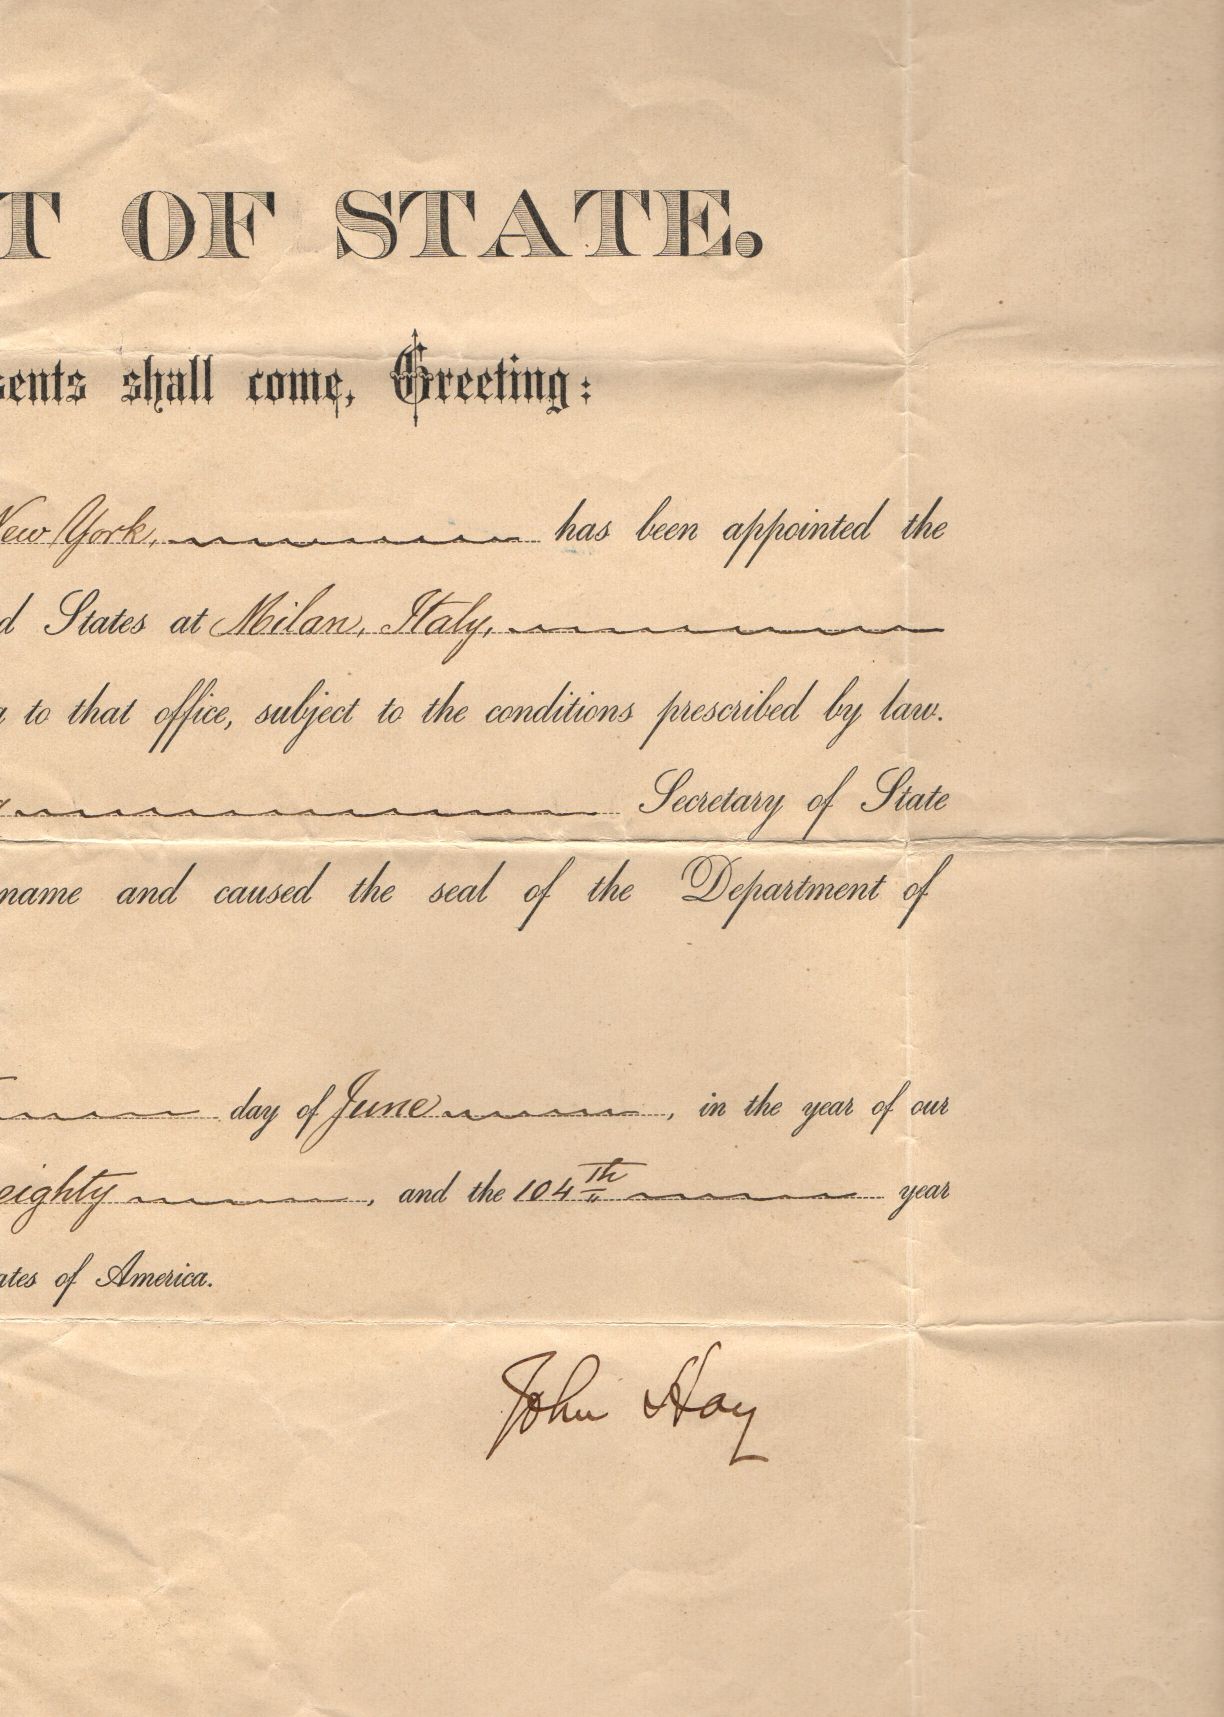 T OF STATE.
sents shall come, Greeting:
New York, has been appointed the
d States at Milan, Italy,
to that office, subject to the conditions prescribed by law.
Secretary of State
name and caused the seal of the Department of
day of June, in the year of our
eighty, and the 104th year
ates of America.
John Hay